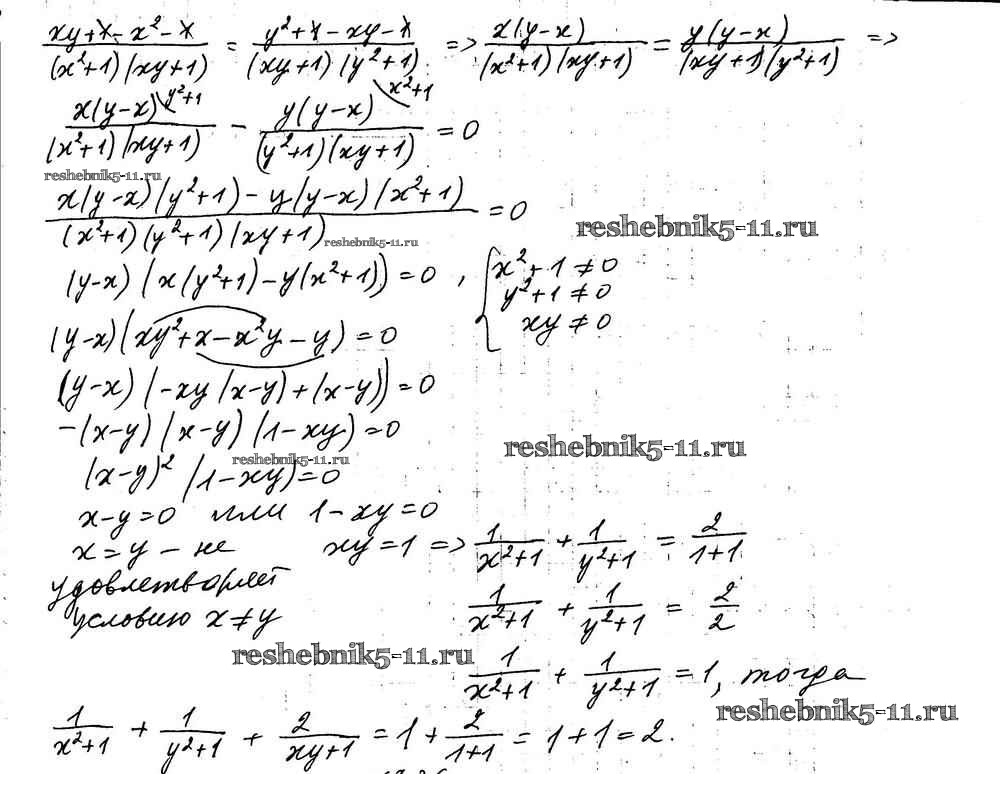 (xy+1-x²-1)/((x²+1)(xy+1)) = (y²+1-xy-1)/((xy+1)(y²+1)) => x(y-x)/((x²+1)(xy+1)) = y(y-x)/((xy+1)(y²+1)) =>
x(y-x)\y²+1/((x²+1)(xy+1)) - y(y-x)\x²+1/((y²+1)(xy+1)) = 0
reshebnik5-11.ru
(x(y-x)(y²+1)-y(y-x)(x²+1))/((x²+1)(y²+1)(xy+1)) = 0
reshebnik5-11.ru
reshebnik5-11.ru
(y-x)(x(y²+1)-y(x²+1))=0, { x²+1≠0
y²+1≠0
xy≠0
(y-x)(xy²+x-x²y-y)=0
(y-x)(-xy(x-y)+(x-y))=0
-(x-y)(x-y)(1-xy)=0
reshebnik5-11.ru
reshebnik5-11.ru
(x-y)²(1-xy)=0
x-y=0 или 1-xy=0
x=y - не xy=1 => 1/(x²+1) + 1/(y²+1) = 2/(1+1)
удовлетворяет
условию x≠y 1/(x²+1) + 1/(y²+1) = 2/2
reshebnik5-11.ru
1/(x²+1) + 1/(y²+1) = 1, тогда
reshebnik5-11.ru
1/(x²+1) + 1/(y²+1) + 2/(xy+1) = 1 + 2/(1+1) = 1+1=2.